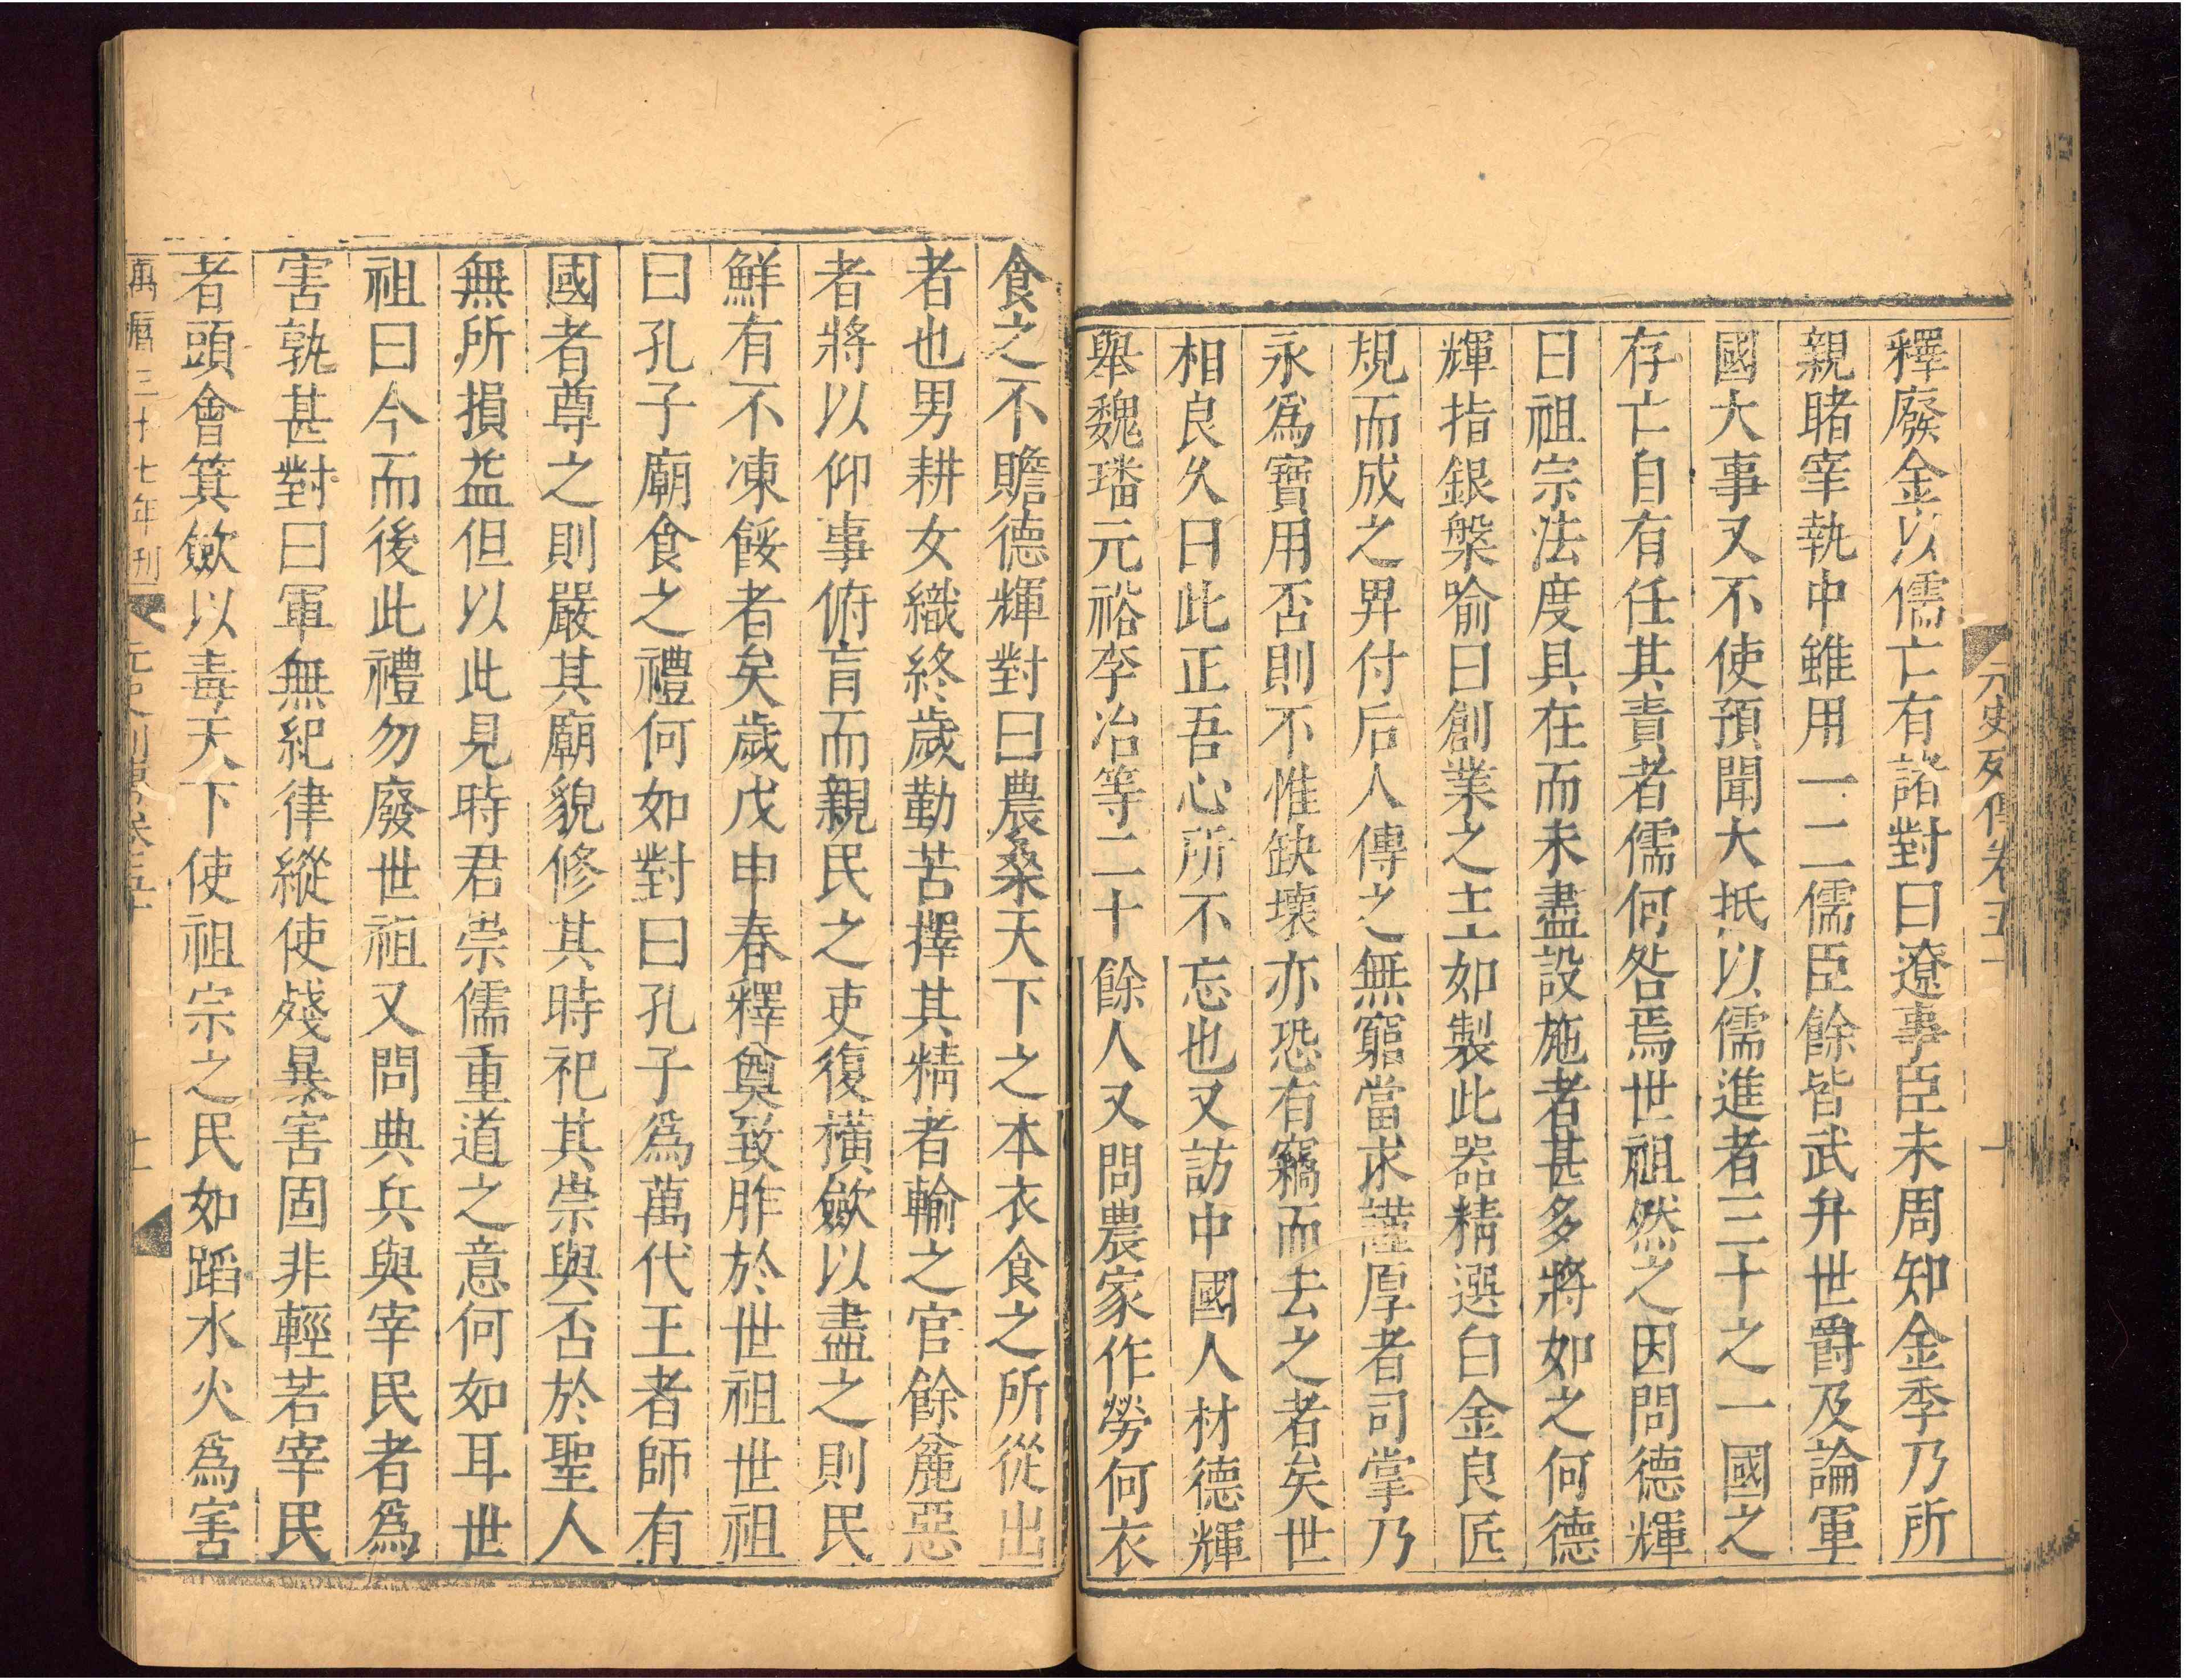 元史列傳卷五十
釋廢金以儒亡有諸對曰遼事臣未周知金季乃所
親睹宰執中雖用一二儒臣餘皆武弁世爵及論軍
國大事又不使預聞大抵以儒進者三十之一國之
存亡自有任其責者儒何咎焉世祖然之因問德輝
曰祖宗法度具在而未盡設施者甚多將如之何德
輝指銀槃喻曰創業之主如製此器精選白金良匠
規而成之畀付后人傳之無窮當求謹厚者司掌乃
永爲寶用否則不惟缺壞亦恐有竊而去之者矣世
相良久曰此正吾心所不忘也又訪中國人材德輝
舉魏璠元裕李冶等二十餘人又問農家作勞何衣
食之不贍德輝對曰農桑天下之本衣食之所從出
者也男耕女織終歲勤苦擇其精者輸之官餘麄惡
者將以仰事俯育而親民之吏復橫斂以盡之則民
鮮有不凍餒者矣歲戊申春釋奠致胙於世祖世祖
曰孔子廟食之禮何如對曰孔子爲萬代王者師有
國者尊之則嚴其廟貌修其時祀其崇與否於聖人
無所損益但以此見時君崇儒重道之意何如耳世
祖曰今而後此禮勿廢世祖又問典兵與宰民者爲
害孰甚對曰軍無紀律縱使殘暴害固非輕若宰民
者頭會箕斂以毒天下使祖宗之民如蹈水火爲害
萬曆三十七年刊
元史列傳卷五十
十一